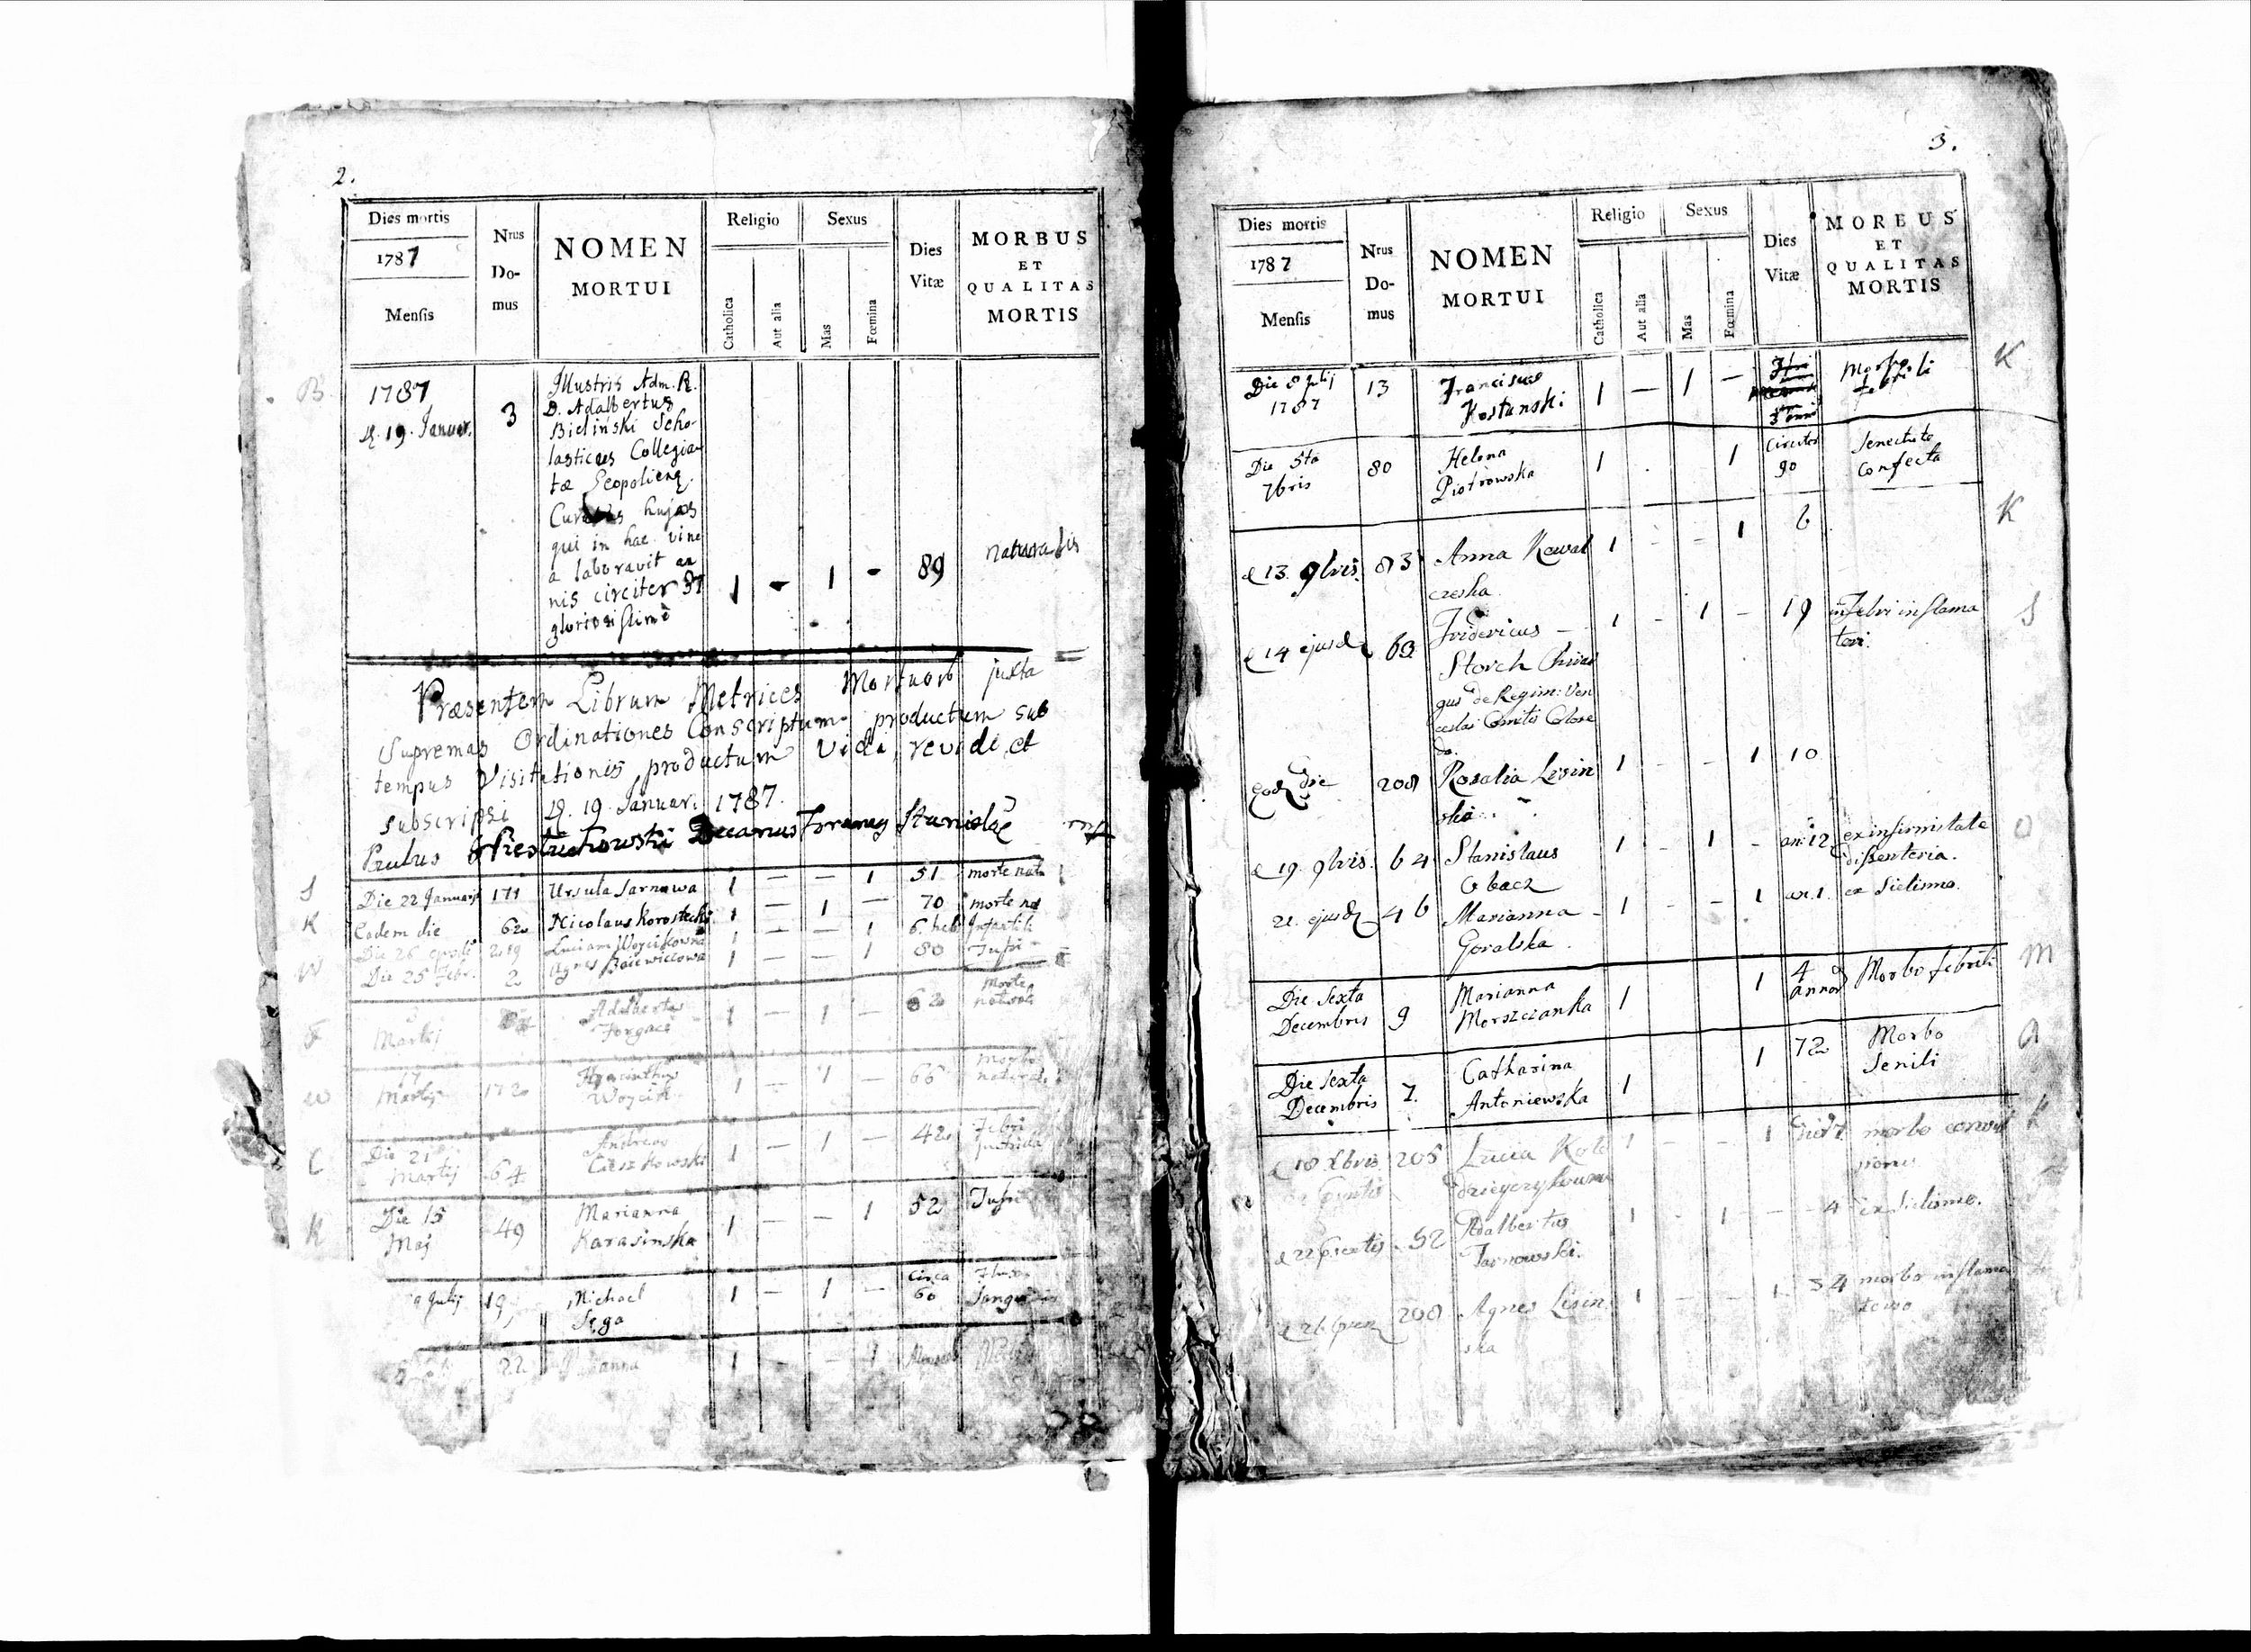 2.
Dies mortis
1787
Mensis
Nrus
Do-
mus
NOMEN
MORTUI
Religio
Catholica
Aut alia
Sexus
Mas
Fœmina
Dies
Vitæ
MORBUS
ET
QUALITAS
MORTIS
B
1787
d. 19. Januar.
3
Illustris Adm. R.
D. Adalbertus
Bieliński Scho-
lasticus Collegia
tæ Leopolienq.
hujas
qui in hac vine
a laboravit an
nis circiter 37
gloriosissimè
1 - 1 - 89 naturalis
Præsentem Librum Metrices Mortuorb juxta
Supremas Ordinationes Conscriptum productum sub
tempus Visitationis productum Vidi, revidi et
subscripsi d. 19 Januar. 1787.
Decanus Foraneus
S Die 22 Januarij 171 Ursula Sarnawa 1 — — 1 51 morte nat
K Eadem die 62 Nicolaus Korostecki 1 — 1 — 70 morte na
W Die 26 219 Luciam Woycikowna 1 — — 1 6. heb Infantili
Die 25 Febr. 2 Agnes 1 — — 1 80 Tussi
F Martij Adalbertus 1 — 1 — 62 Morte
naturali
W 17
Martij 172 Hyacinthus
Woycik 1 — 1 — 66 Morbo
natural.
C Die 21
Martij 64 Andreas
Cieszkowski 1 — 1 — 42 Febri
putrida
K Die 15
Maj 49 Marianna
Karasinska 1 — — 1 52 Tussi
Julij 19 Michael
Sęga 1 — 1 — Circa
60
22 1 - - 1
3.
Dies mortis
1787
Mensis
Nrus
Do-
mus
NOMEN
MORTUI
Religio
Catholica
Aut alia
Sexus
Mas
Fœmina
Dies
Vitæ
MORBUS
ET
QUALITAS
MORTIS
Die 8 Julij
1787 13 Franciscus
Kostanski 1 — 1 — Morbo
febrili K
Die 5ta
7bris 80 Helena
Piotrowska 1 . 1 Circiter
90 Senectute
Confecta
K
d 13. 9bris. 83 Anna Kowal
czeska. 1 - - 1 6
d 14 ejusd 63 Fridericus —
Storch
gus de Regim: Ven
ceslai Comitis Colore
do. 1 - 1 - 19 Febri inflama
tori. S
eod die 208 Rosalia Lisin
ska. 1 - - 1 10
d 19. 9bris. 64 Stanislaus
Obacz 1 - 1 - an: 12 ex infirmitate
dissenteria. O
21. ejusd 46 Marianna
Goralska. 1 - - 1 an. 1.
Die Sexta
Decembris 9 Marianna
Morszczanka 1 1 4
annor Morbo febrili M
Die Sexta
Decembris 7. Catharina
Antoniewska 1 1 72 Morbo
Senili A
d 18 Xbris 205 Lucia 1 - - 1 morbo K
52 Adalbertus
Tarnowski. 1 - 1 - 4
208 Agnes Lisin
ska 1 - - 1 34 morbo inflama